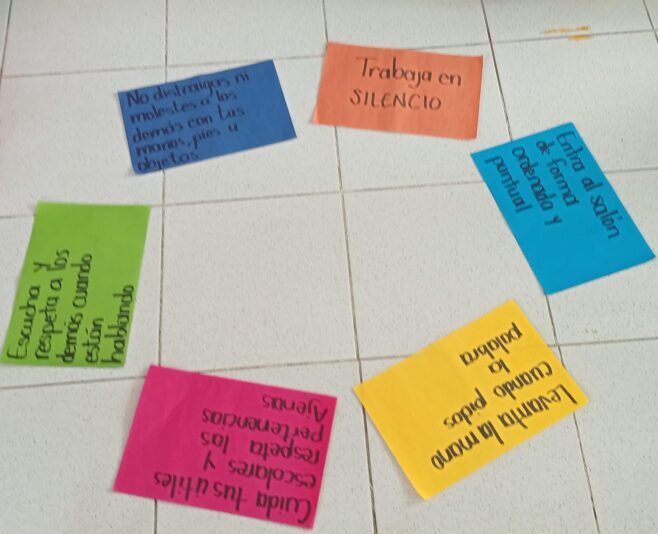 No distraigas ni
molestes a los
demás con tus
manos, pies u
objetos
Trabaja en
SILENCIO
Entra al salón
de forma
ordenada y
puntual
Levanta la mano
cuando pidas
la
palabra
Cuida tus útiles
escolares y
respeta las
pertenencias
Ajenas
Escucha y
respeta a los
demás cuando
están
hablando